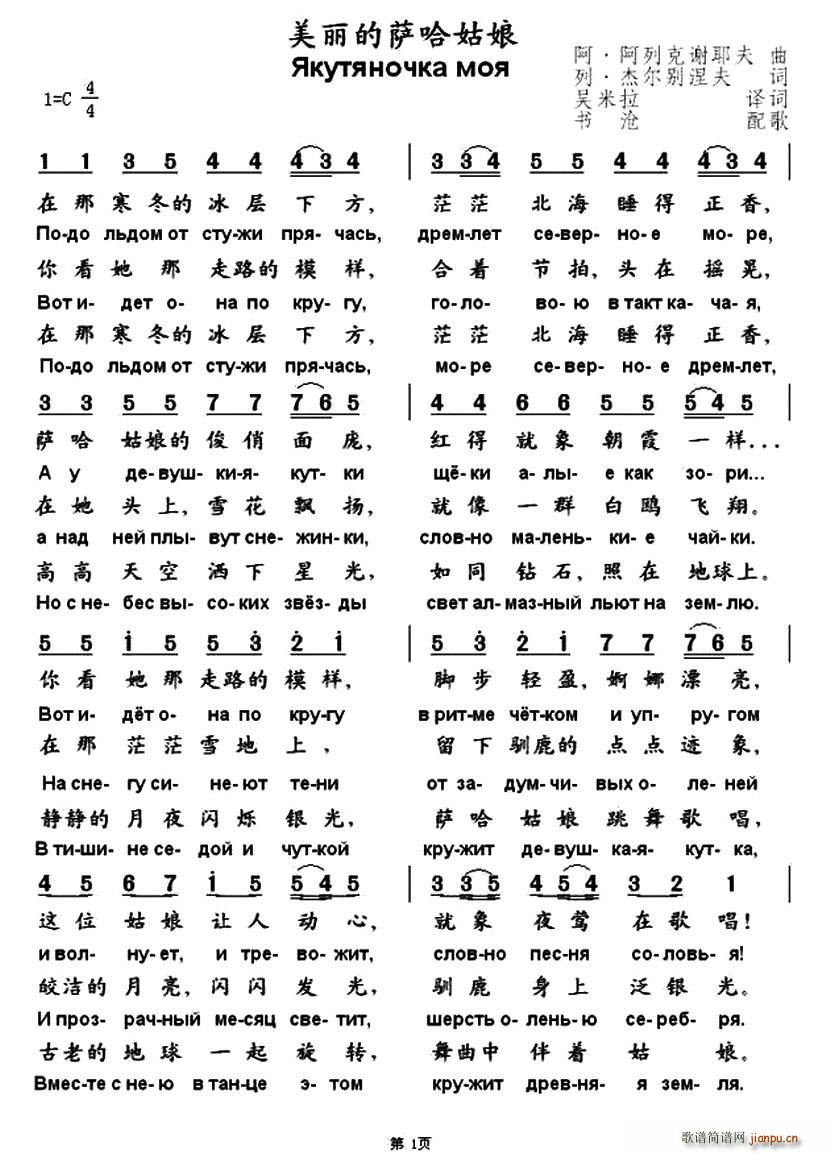 美丽的萨哈姑娘
Якутяночка моя
阿·阿列克谢耶夫 曲
列·杰尔别涅夫 词
吴米拉 译词
书沧 配歌
1=C 4/4
1 1 3 5 4 4 4 3 4 | 3 3 4 5 5 4 4 4 3 4 |
在那寒冬的冰层下方, 茫茫北海睡得正香,
По-до льдом от сту-жи пря-чась, дрем-лет се-вер-но-е мо-ре,
你看她那走路的模样, 合着节拍,头在摇晃,
Вот и-дет о-на по кру-гу, го-ло-вою в такт ка-ча-я,
在那寒冬的冰层下方, 茫茫北海睡得正香,
По-до льдом от сту-жи пря-чась, мо-ре се-вер-но-е дрем-лет,
3 3 5 5 7 7 7 6 5 | 4 4 6 6 5 5 5 4 5 |
萨哈姑娘的俊俏面庞, 红得就象朝霞一样...
А у де-вуш-ки-я-кут-ки щё-ки а-лы-е как зо-ри...
在她头上,雪花飘扬, 就像一群白鸥飞翔。
а над ней плы-вут сне-жин-ки, слов-но ма-лень-ки-е чай-ки.
高高天空洒下星光, 如同钻石,照在地球上。
Но с не-бес вы-со-ких звёз-ды свет ал-маз-ный льют на зем-лю.
5 5 i 5 5 3 2 i | 5 3 2 i 7 7 7 6 5 |
你看她那走路的模样, 脚步轻盈,婀娜漂亮,
Вот и-дёт о-на по кру-гу в рит-ме чёт-ком и уп-ру-гом
在那茫茫雪地上, 留下驯鹿的点点迹象,
На сне-гу си-не-ют те-ни от за-дум-чи-вых о-ле-ней
静静的月夜闪烁银光, 萨哈姑娘跳舞歌唱,
В ти-ши-не се-дой и чут-кой кру-жит де-вуш-ка-я-кут-ка,
4 5 6 7 i 5 5 4 5 | 3 3 5 4 5 4 3 2 1 |
这位姑娘让人动心, 就象夜莺在歌唱!
и вол-ну-ет, и тре-во-жит, слов-но пес-ня со-ловь-я!
皎洁的月亮,闪闪发光, 驯鹿身上泛银光。
И проз-рач-ный ме-сяц све-тит, шерсть о-лень-ю се-реб-ря.
古老的地球一起旋转, 舞曲中伴着姑娘。
Вмес-те с не-ю в тан-це э-том кру-жит древ-ня-я зем-ля.
第 1页
歌谱简谱网
jianpu.cn